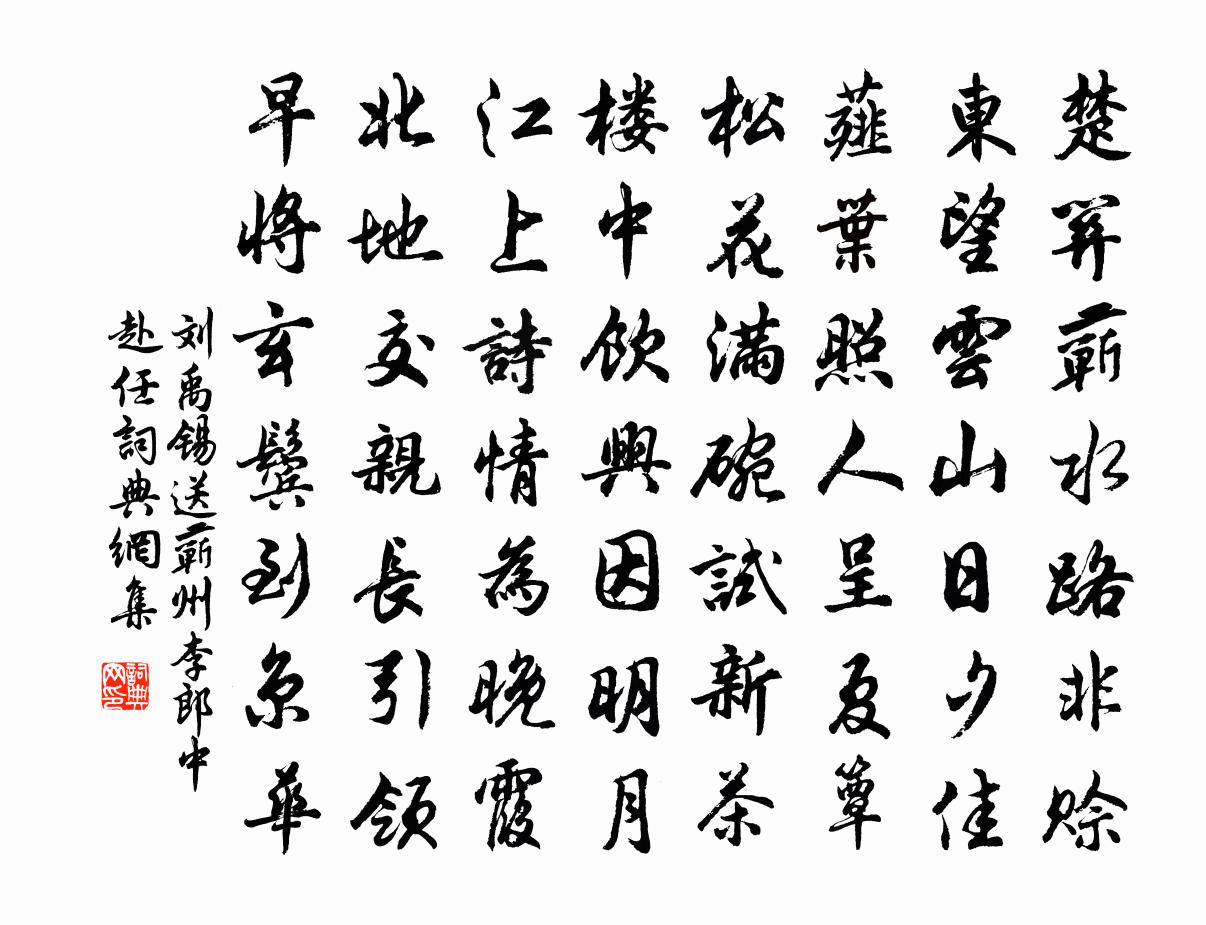 楚關蘄水路非賒
東望雲山日夕佳
薤葉照人呈夏簟
松花滿碗試新茶
楼中飲興因明月
江上詩情為晚霞
北地交親長引領
早將玄鬢到京華
刘禹錫送蘄州李郎中
赴任詞典網集
詞典网印